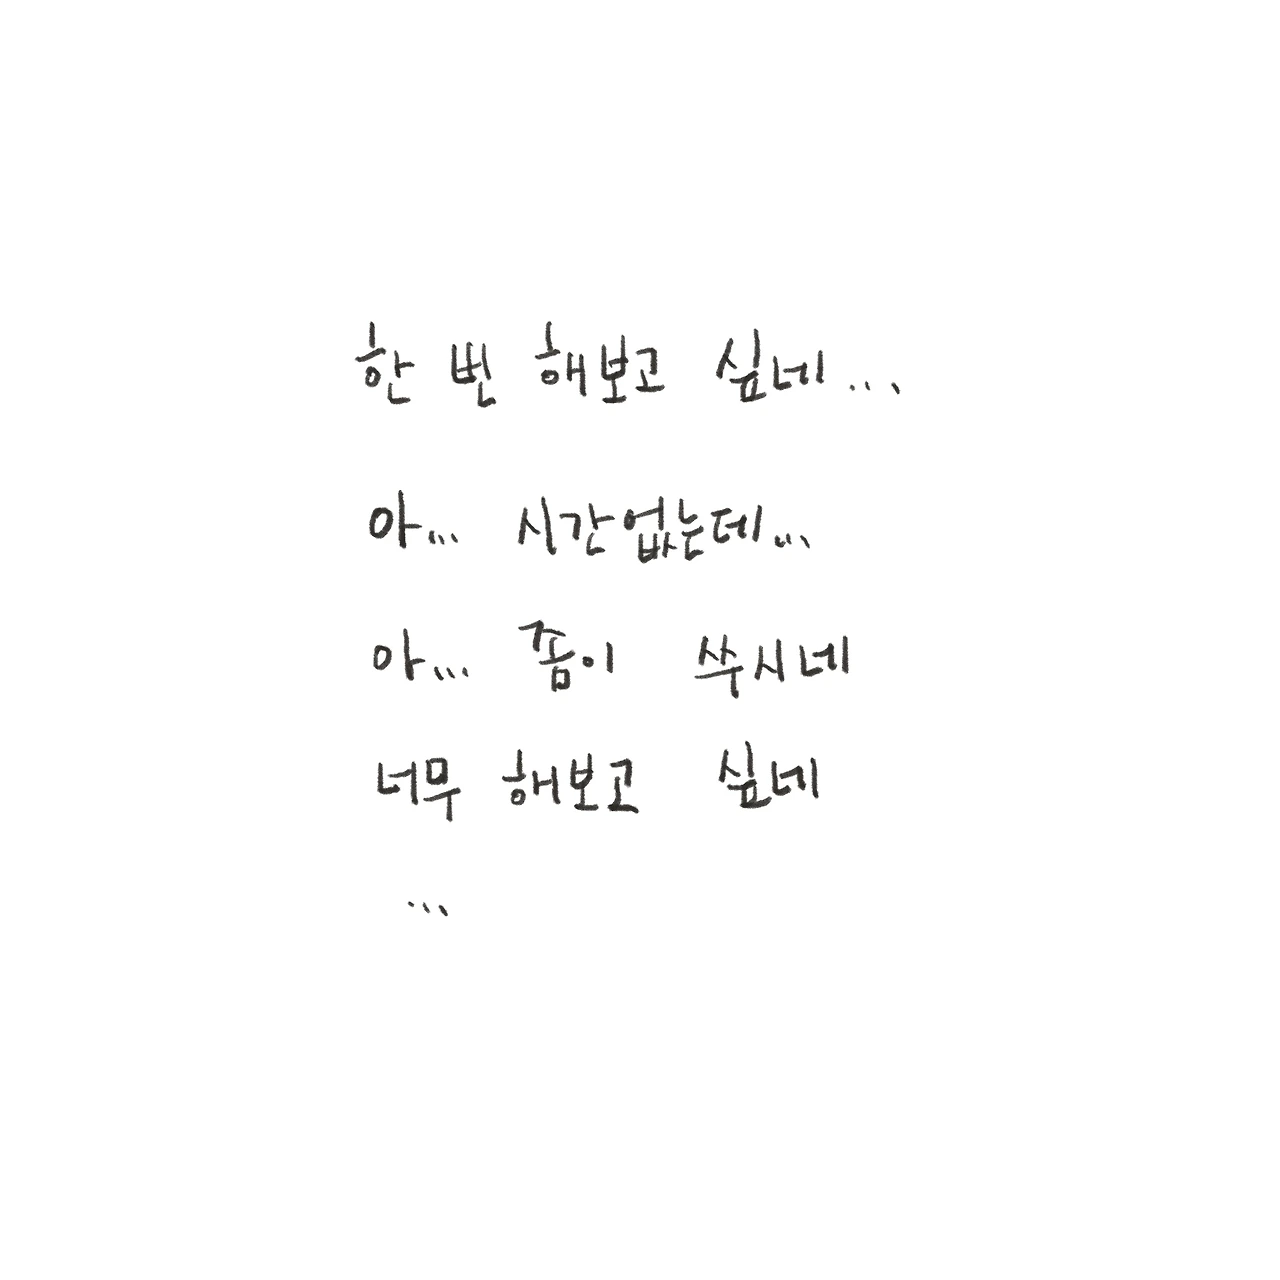 한 번 해보고 싶네...
아... 시간없는데...
아... 좀이 쑤시네
너무 해보고 싶네
...